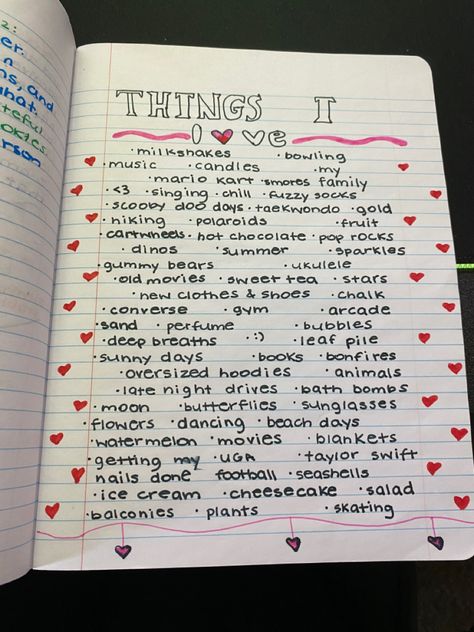 2:
er.
n
ns, and
what
teful
ookies
erson
THINGS I
love
·milkshakes ·bowling
·music ·candles ·my
·mario kart ·smores family
·<3 ·singing ·chill ·fuzzy socks
·scooby doo days ·taekwondo ·gold
·hiking ·polaroids ·fruit
·cartwheels ·hot chocolate ·pop rocks
·dinos ·summer ·sparkles
·gummy bears ·ukulele
·old movies ·sweet tea ·stars
·new clothes & shoes ·chalk
·converse ·gym ·arcade
·sand ·perfume ·bubbles
·deep breaths ·:) ·leaf pile
·sunny days ·books ·bonfires
·oversized hoodies ·animals
·late night drives ·bath bombs
·moon ·butterflies ·sunglasses
·flowers ·dancing ·beach days
·watermelon ·movies ·blankets
·getting my ·UGA ·taylor swift
nails done football ·seashells
·ice cream ·cheesecake ·salad
·balconies ·plants ·skating